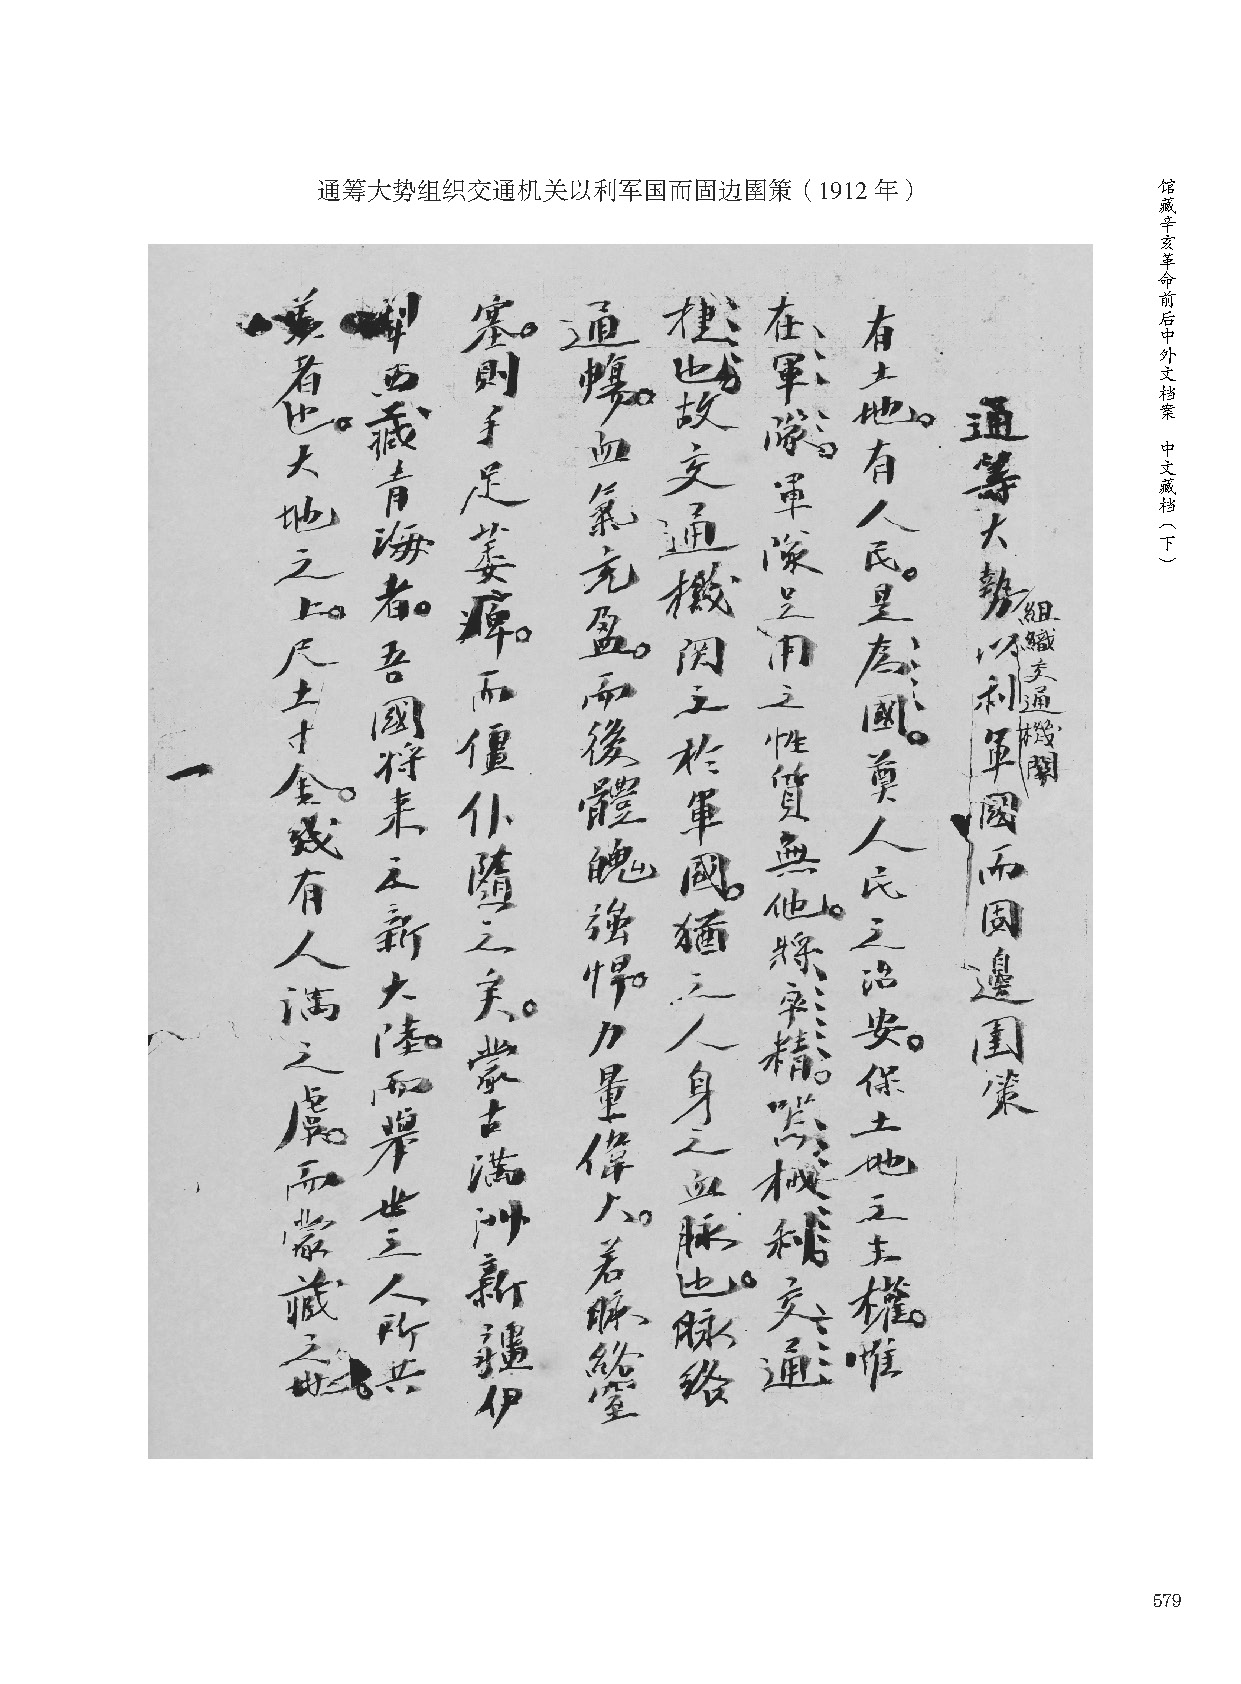 通筹大势组织交通机关以利军国而固边圉策（1912 年）
馆藏辛亥革命前后中外文档案 中文藏档（下）
通籌大勢以利軍國而固邊圉策
組織交通機關
有土地。有人民。是為國。奠人民之治安。保土地之主權。惟
在軍隊。軍隊足用之性質無他。將卒精。器械利。交通
捷也。故交通機関之於軍國。猶之人身之血脉也。脉絡
通暢。血氣充盈。而後體魄強悍。力量偉大。若脉絡窒
塞。則手足萎痺。而僵仆隨之矣。蒙古滿洲新疆伊
犁西藏青海者。吾國將来之新大陸。而舉世之人所共
羨者也。大地之上。尺土寸金。幾有人滿之虞。而蒙藏之地。
一
579